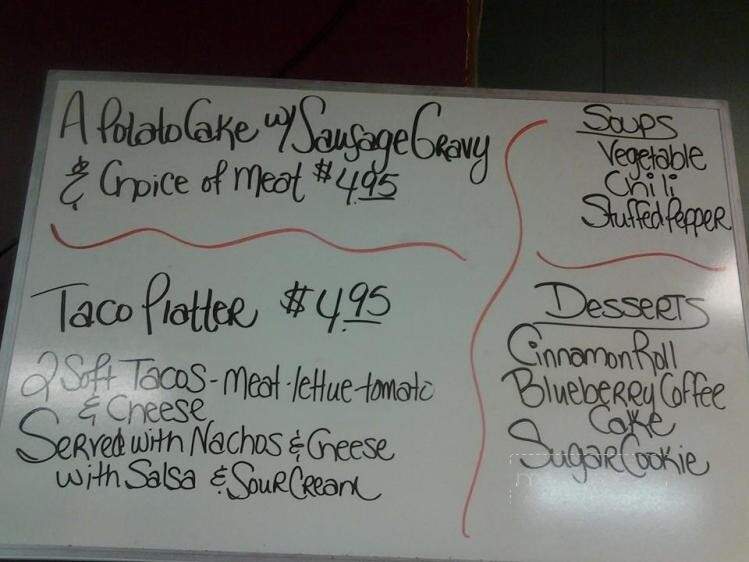 A Potato Cake w/ Sausage Gravy
& Choice of Meat $4.95
Taco Platter $4.95
2 Soft Tacos - Meat - lettue - tomato
& Cheese
Served with Nachos & Cheese
with Salsa & Sour Cream
Soups
Vegetable
Chili
Stuffed Pepper
Desserts
Cinnamon Roll
Blueberry Coffee
Cake
Sugar Cookie